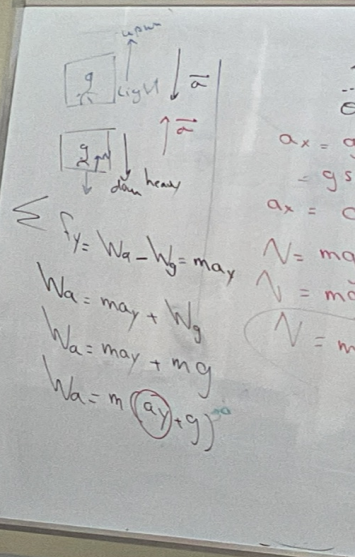 upown
g
light
a
a
down heavy
Σ Fy = Wa - Wg = may
Wa = may + Wg
Wa = may + mg
Wa = m(ay + g)
ax = g
= gs
ax =
N = ma
N = m
N = m